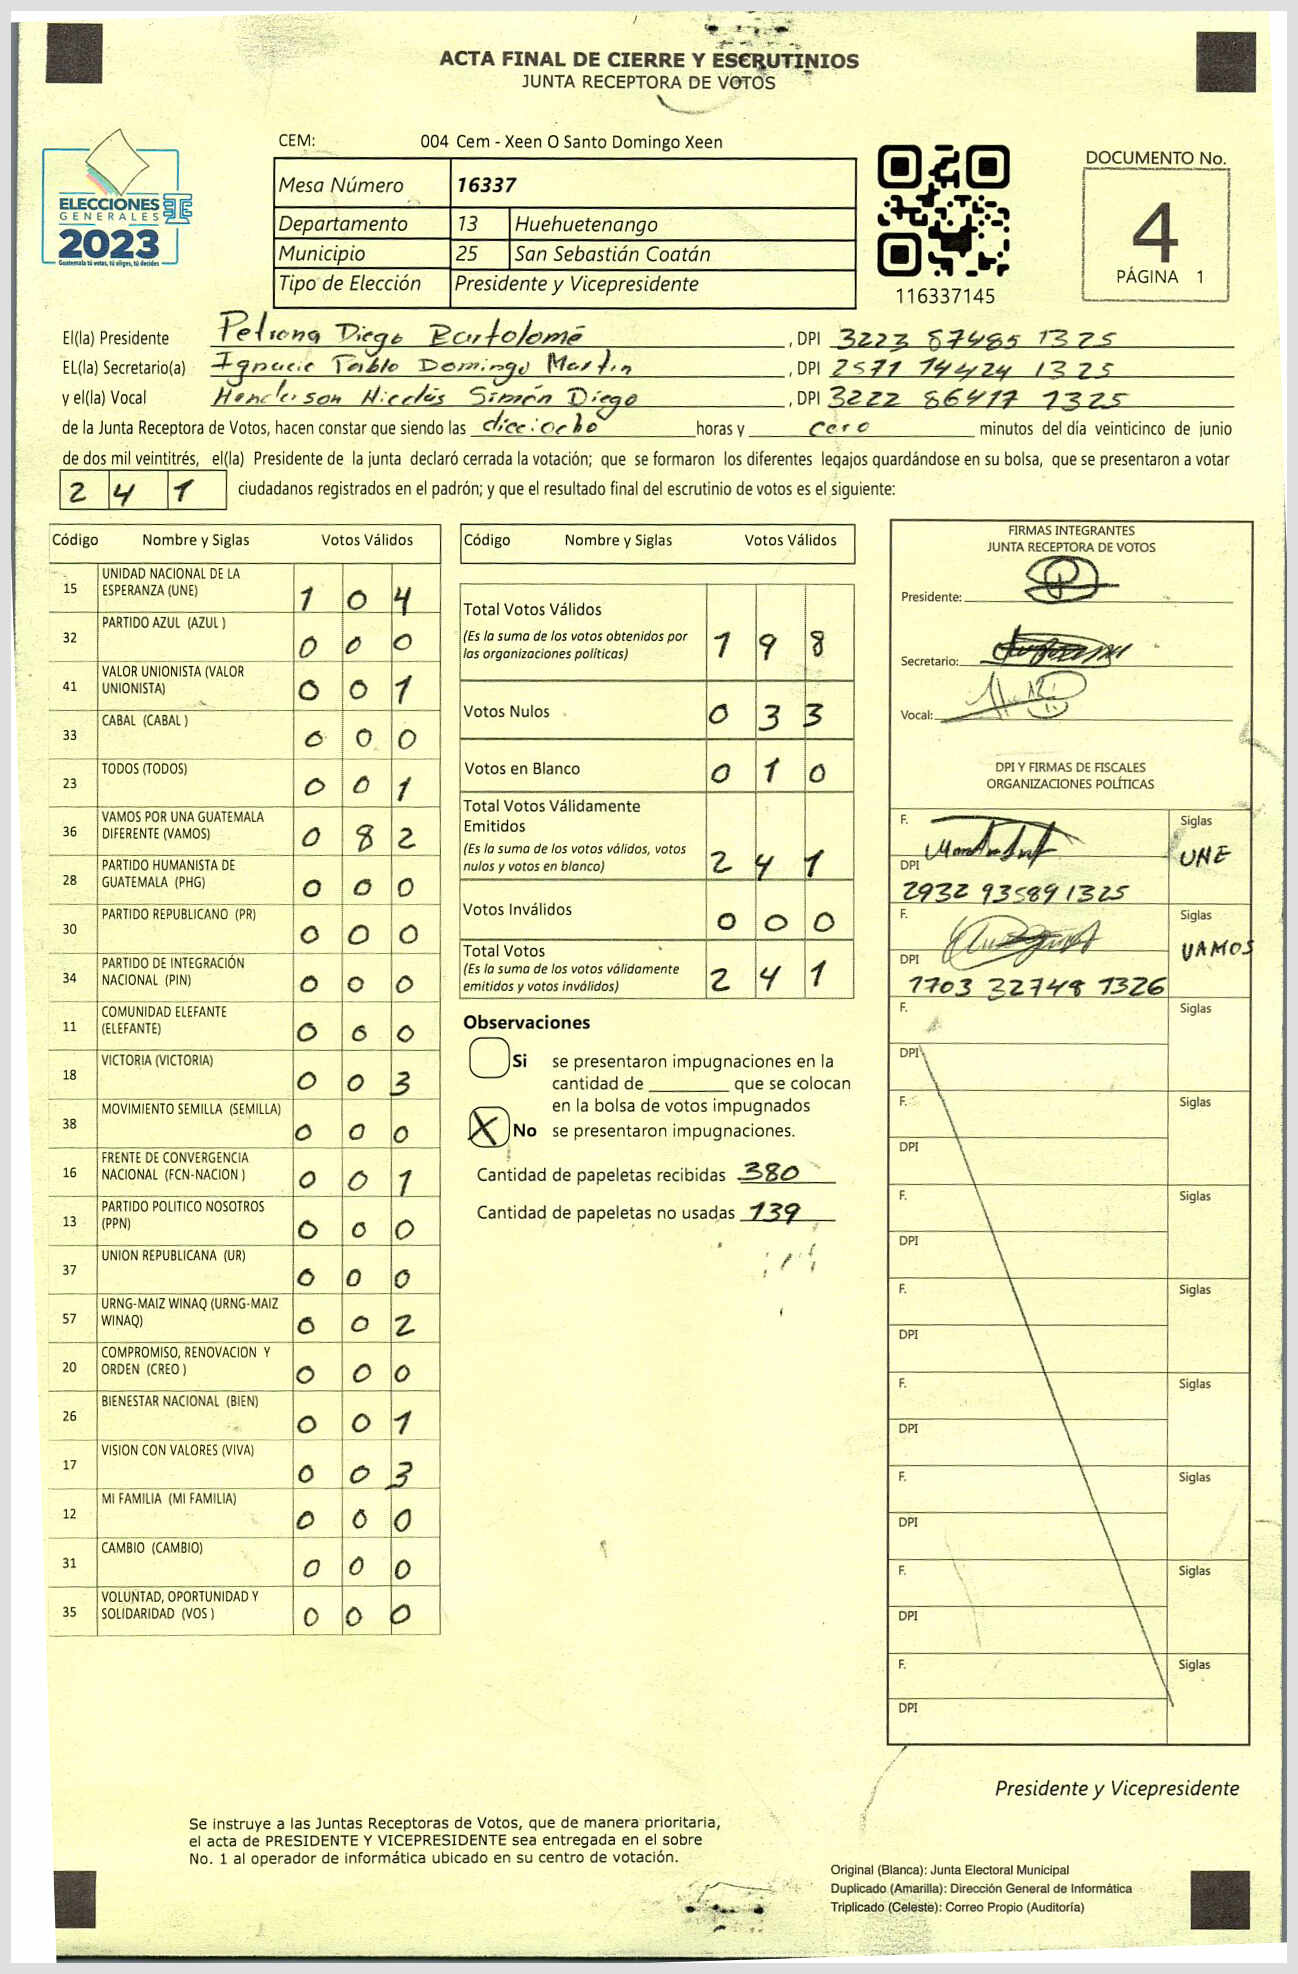 ACTA FINAL DE CIERRE Y ESCRUTINIOS
JUNTA RECEPTORA DE VOTOS
CEM: 004 Cem - Xeen O Santo Domingo Xeen
Mesa Número 16337
Departamento 13 Huehuetenango
Municipio 25 San Sebastián Coatán
Tipo de Elección Presidente y Vicepresidente
ELECCIONES
GENERALES
2023
Guatemala tú votas, tú eliges, tú decides
116337145
DOCUMENTO No.
4
PÁGINA 1
El(la) Presidente Petrona Diego Bartolomé , DPI 3223 87485 1325
EL(la) Secretario(a) Ignacio Pablo Domingo Martín , DPI 2571 14424 1325
y el(la) Vocal Henderson Nicolás Simón Diego , DPI 3222 86417 1325
de la Junta Receptora de Votos, hacen constar que siendo las dieciocho horas y cero minutos del día veinticinco de junio
de dos mil veintitrés, el(la) Presidente de la junta declaró cerrada la votación; que se formaron los diferentes legajos guardándose en su bolsa, que se presentaron a votar
2 4 1 ciudadanos registrados en el padrón; y que el resultado final del escrutinio de votos es el siguiente:
Código Nombre y Siglas Votos Válidos
15 UNIDAD NACIONAL DE LA
ESPERANZA (UNE) 1 0 4
32 PARTIDO AZUL (AZUL ) 0 0 0
41 VALOR UNIONISTA (VALOR
UNIONISTA) 0 0 1
33 CABAL (CABAL ) 0 0 0
23 TODOS (TODOS) 0 0 1
36 VAMOS POR UNA GUATEMALA
DIFERENTE (VAMOS) 0 8 2
28 PARTIDO HUMANISTA DE
GUATEMALA (PHG) 0 0 0
30 PARTIDO REPUBLICANO (PR) 0 0 0
34 PARTIDO DE INTEGRACIÓN
NACIONAL (PIN) 0 0 0
11 COMUNIDAD ELEFANTE
(ELEFANTE) 0 0 0
18 VICTORIA (VICTORIA) 0 0 3
38 MOVIMIENTO SEMILLA (SEMILLA) 0 0 0
16 FRENTE DE CONVERGENCIA
NACIONAL (FCN-NACION ) 0 0 1
13 PARTIDO POLITICO NOSOTROS
(PPN) 0 0 0
37 UNION REPUBLICANA (UR) 0 0 0
57 URNG-MAIZ WINAQ (URNG-MAIZ
WINAQ) 0 0 2
20 COMPROMISO, RENOVACION Y
ORDEN (CREO ) 0 0 0
26 BIENESTAR NACIONAL (BIEN) 0 0 1
17 VISION CON VALORES (VIVA) 0 0 3
12 MI FAMILIA (MI FAMILIA) 0 0 0
31 CAMBIO (CAMBIO) 0 0 0
35 VOLUNTAD, OPORTUNIDAD Y
SOLIDARIDAD (VOS ) 0 0 0
Código Nombre y Siglas Votos Válidos
Total Votos Válidos
(Es la suma de los votos obtenidos por
las organizaciones políticas) 1 9 8
Votos Nulos 0 3 3
Votos en Blanco 0 1 0
Total Votos Válidamente
Emitidos
(Es la suma de los votos válidos, votos
nulos y votos en blanco) 2 4 1
Votos Inválidos 0 0 0
Total Votos
(Es la suma de los votos válidamente
emitidos y votos inválidos) 2 4 1
Observaciones
Si se presentaron impugnaciones en la
cantidad de ________ que se colocan
en la bolsa de votos impugnados
X No se presentaron impugnaciones.
Cantidad de papeletas recibidas 380
Cantidad de papeletas no usadas 139
FIRMAS INTEGRANTES
JUNTA RECEPTORA DE VOTOS
Presidente:
Secretario:
Vocal:
DPI Y FIRMAS DE FISCALES
ORGANIZACIONES POLÍTICAS
F. Siglas
UNE
DPI
2932 93589 1325
F. Siglas
VAMOS
DPI
1703 32748 1326
F. Siglas
DPI
F. Siglas
DPI
F. Siglas
DPI
F. Siglas
DPI
F. Siglas
DPI
F. Siglas
DPI
F. Siglas
DPI
F. Siglas
DPI
Presidente y Vicepresidente
Se instruye a las Juntas Receptoras de Votos, que de manera prioritaria,
el acta de PRESIDENTE Y VICEPRESIDENTE sea entregada en el sobre
No. 1 al operador de informática ubicado en su centro de votación.
Original (Blanca): Junta Electoral Municipal
Duplicado (Amarilla): Dirección General de Informática
Triplicado (Celeste): Correo Propio (Auditoría)